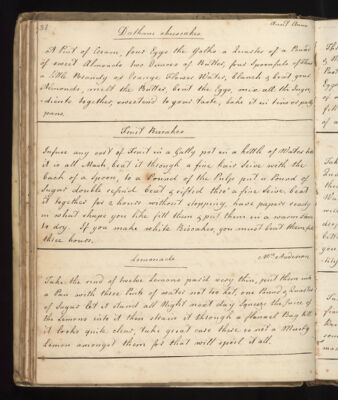 Aunt Anne
Dalham cheesecakes
A Pint of Cream, four Eggs the Yolks a Quarter of a Pound
of sweet Almonds two Ounces of Butter, four Spoonfuls of
a little Brandy or Orange Flower Water, blanch & beat your
Almonds, melt the Butter, beat the Eggs, mix all the Ingre
dients together, sweeten'd to your taste, bake it in tins or patty
pans.
Fruit Biscakes
Infuse any sort of Fruit in a Gally pot in a kettle of Water till
it is all Mash, beat it through a fine hair Seive with the
back of a Spoon, to a Pound of the Pulp put a Pound of
Sugar double refined beat & sifted thro' a fine Seive, beat
it together for 2 hours without stopping, have papers ready
in what shape you like fill them & put them in a warm
to dry. If you make white Biscakes, you must beat them for
three hours.
Lemonade
Mrs Anderson
Take the rind of twelve Lemons pared very thin, put them into
a Pan with three Pints of water not too hot, one Pound & Quarter
of Sugar let it stand all Night next day Squeeze the Juice of
the Lemons into it then strain it through a flannel Bag till
it looks quite clear, take great care there is not a Musty
Lemon amongst them for that will spoil it all.